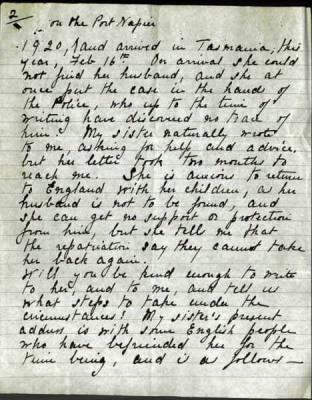 2
on the Port Napier
1920, and arrived in Tasmania, this
year, Feb 16th. On arrival she could
not find her husband, and she at
once put the case in the hands of
the Police, who up to the time of
writing have discovered no trace of
him. My sister naturally wrote
to me, asking for help and advice,
but her letter took two months to
reach me. She is anxious to return
to England with her children, as her
husband is not to be found, and
she can get no support or protection
from him, but she tells me that
the repatriation say they cannot take
her back again.
Will you be kind enough to write
to her, and to me, and tell us
what steps to take under the
circumstances? My sister's present
address is with some English people
who have befriended her for the
time being, and is as follows —